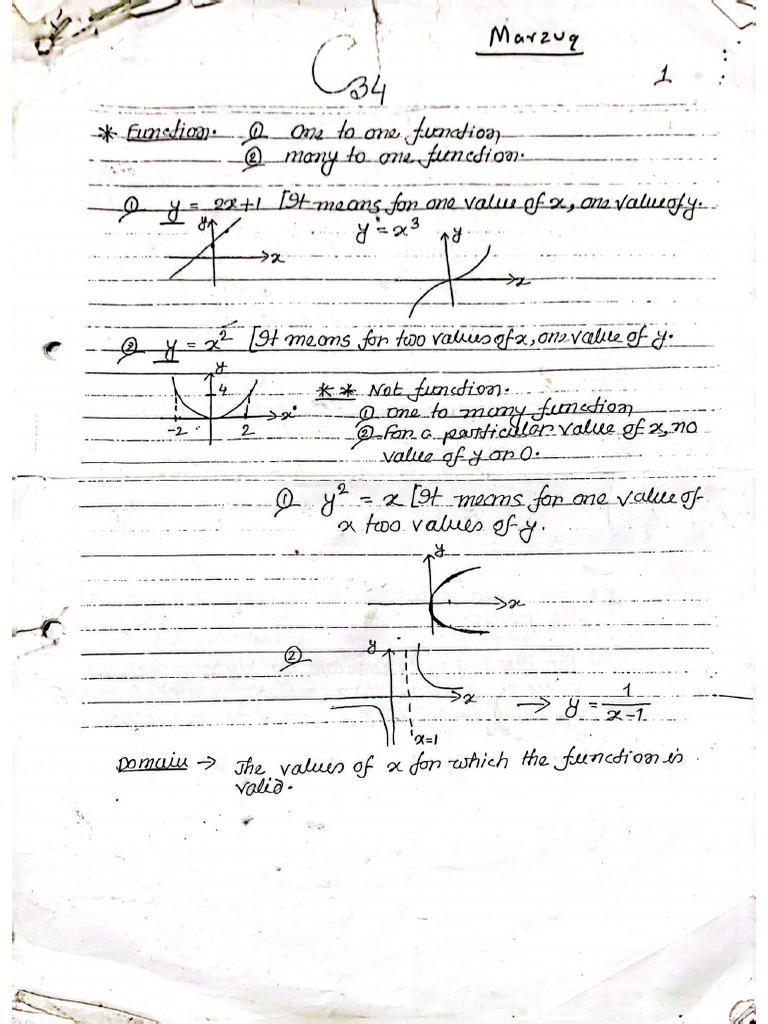 Marzuq
C34
1
* Function. ① One to one function
② many to one function.
① y = 2x+1 [It means for one value of x, one value of y.
y = x³
y
x
y
x
② y = x² [It means for two values of x, one value of y.
y
4
-2
2
x
** Not function.
① one to many function
② For a particular value of x, no
value of y or 0.
① y² = x [It means for one value of
x two values of y.
y
x
②
y
x
→ y = 1/(x-1)
x=1
Domain → The values of x for which the function is
valid.